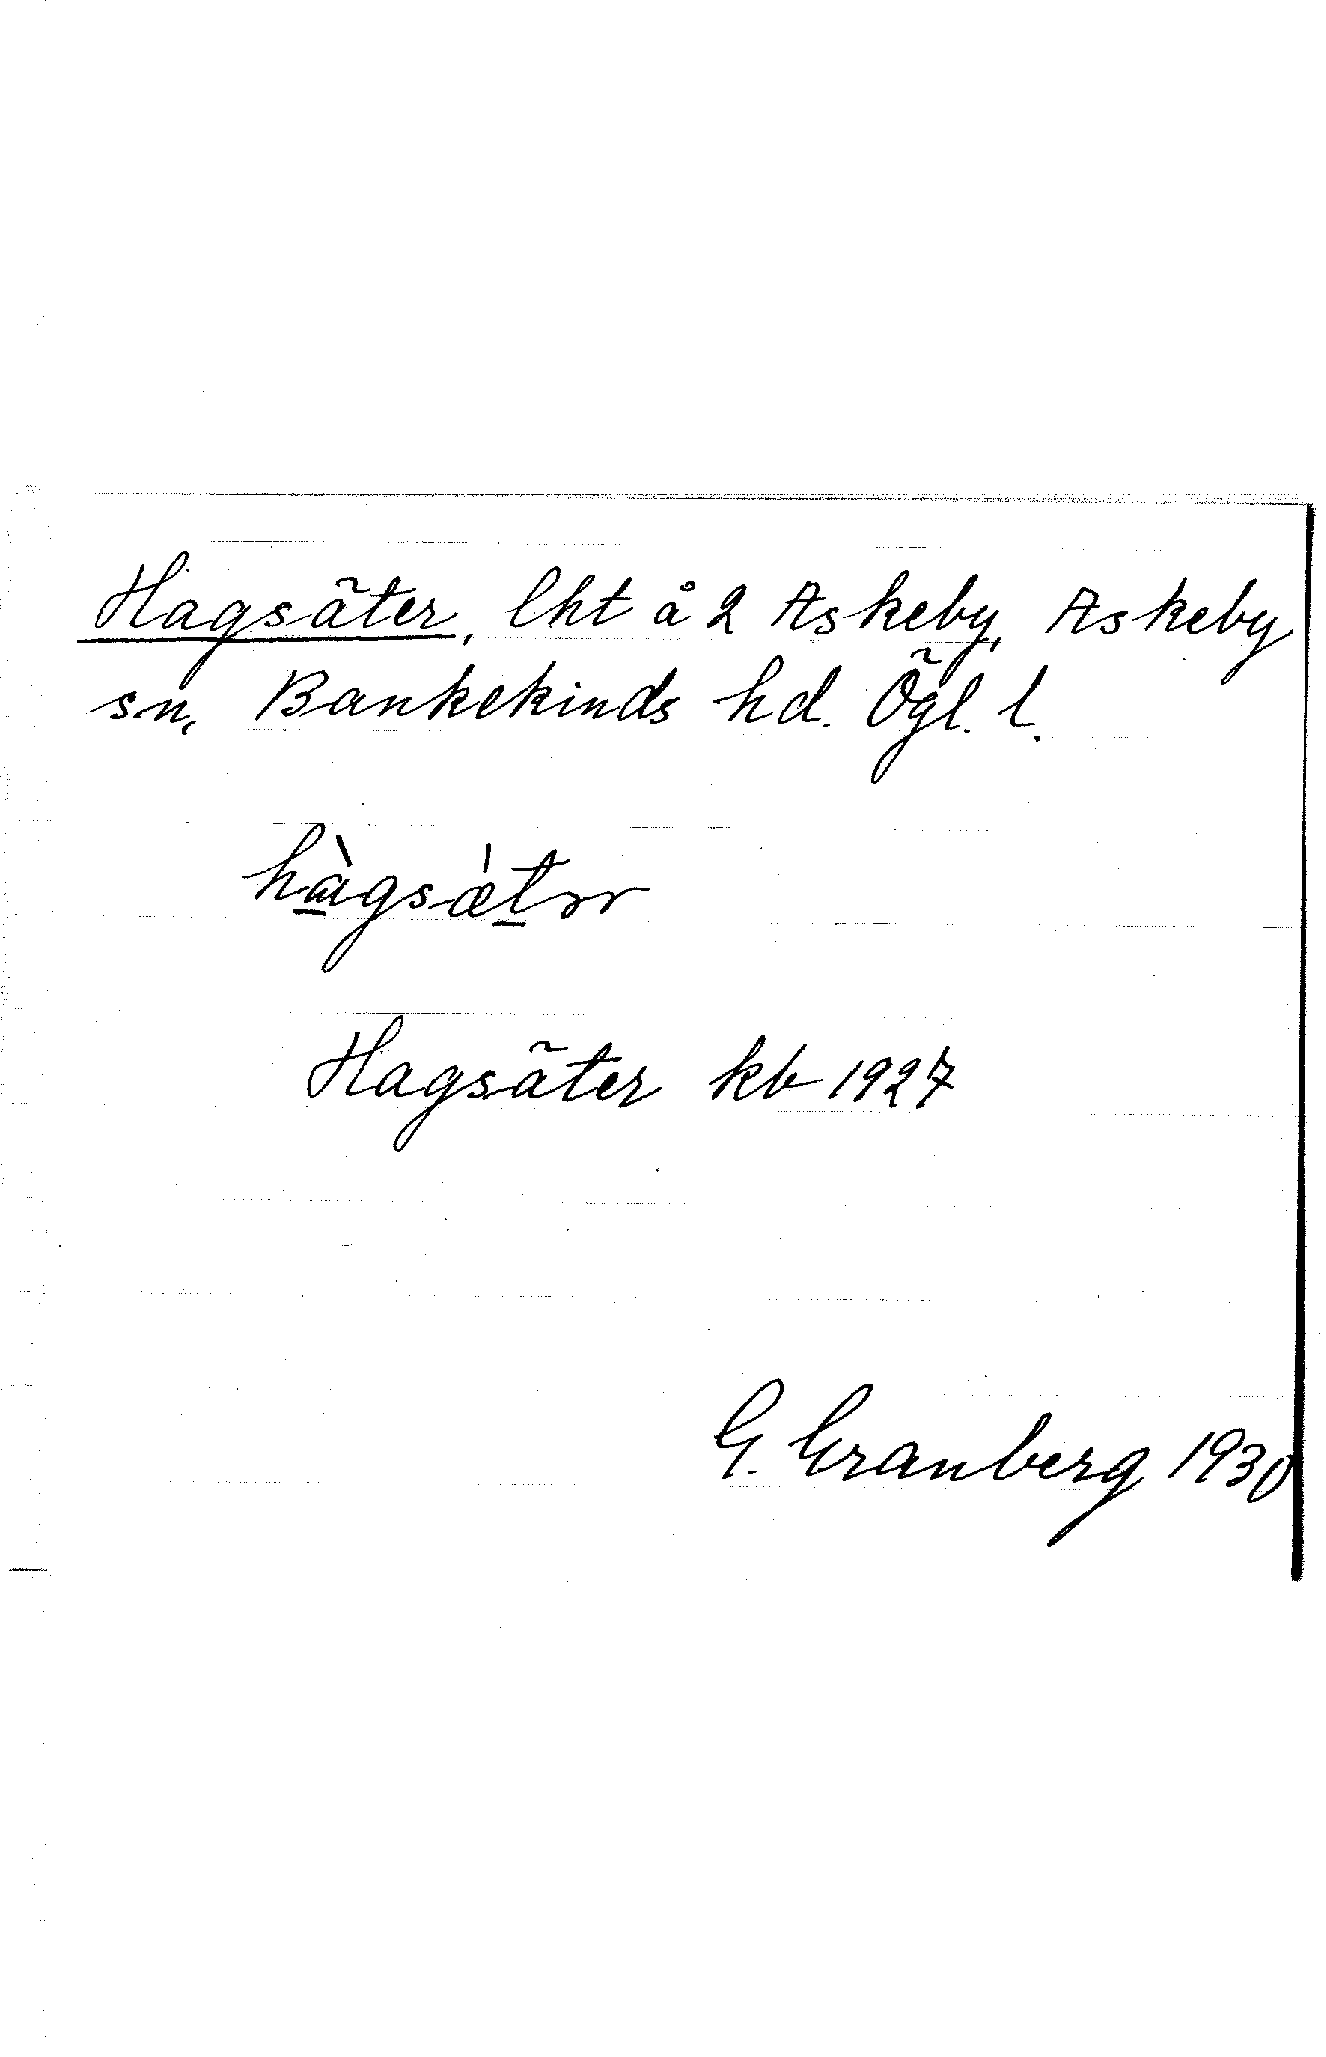 Hagsäter, lht å 2 Askeby, Askeby
sn, Bankekinds hd. Ögl. l.
hàgsæ̀tər
Hagsäter kb 1927
G. Granberg 1930